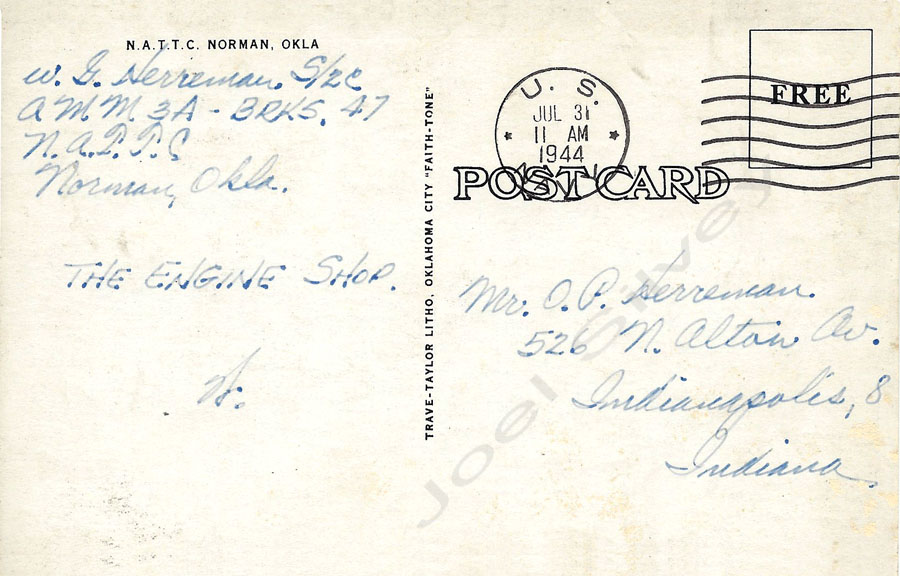 N.A.T.T.C. NORMAN, OKLA
W. G. Herreman S/2c
AMM 3A - BRKS. 47
N.A.T.T.C
Norman, Okla.
THE ENGINE SHOP.
W.
TRAVE-TAYLOR LITHO, OKLAHOMA CITY "FAITH-TONE"
U. S.
JUL 31
11 AM
1944
FREE
POST CARD
Mr. O. P. Herreman.
526 N. Alton Av.
Indianapolis, 8
Indiana.